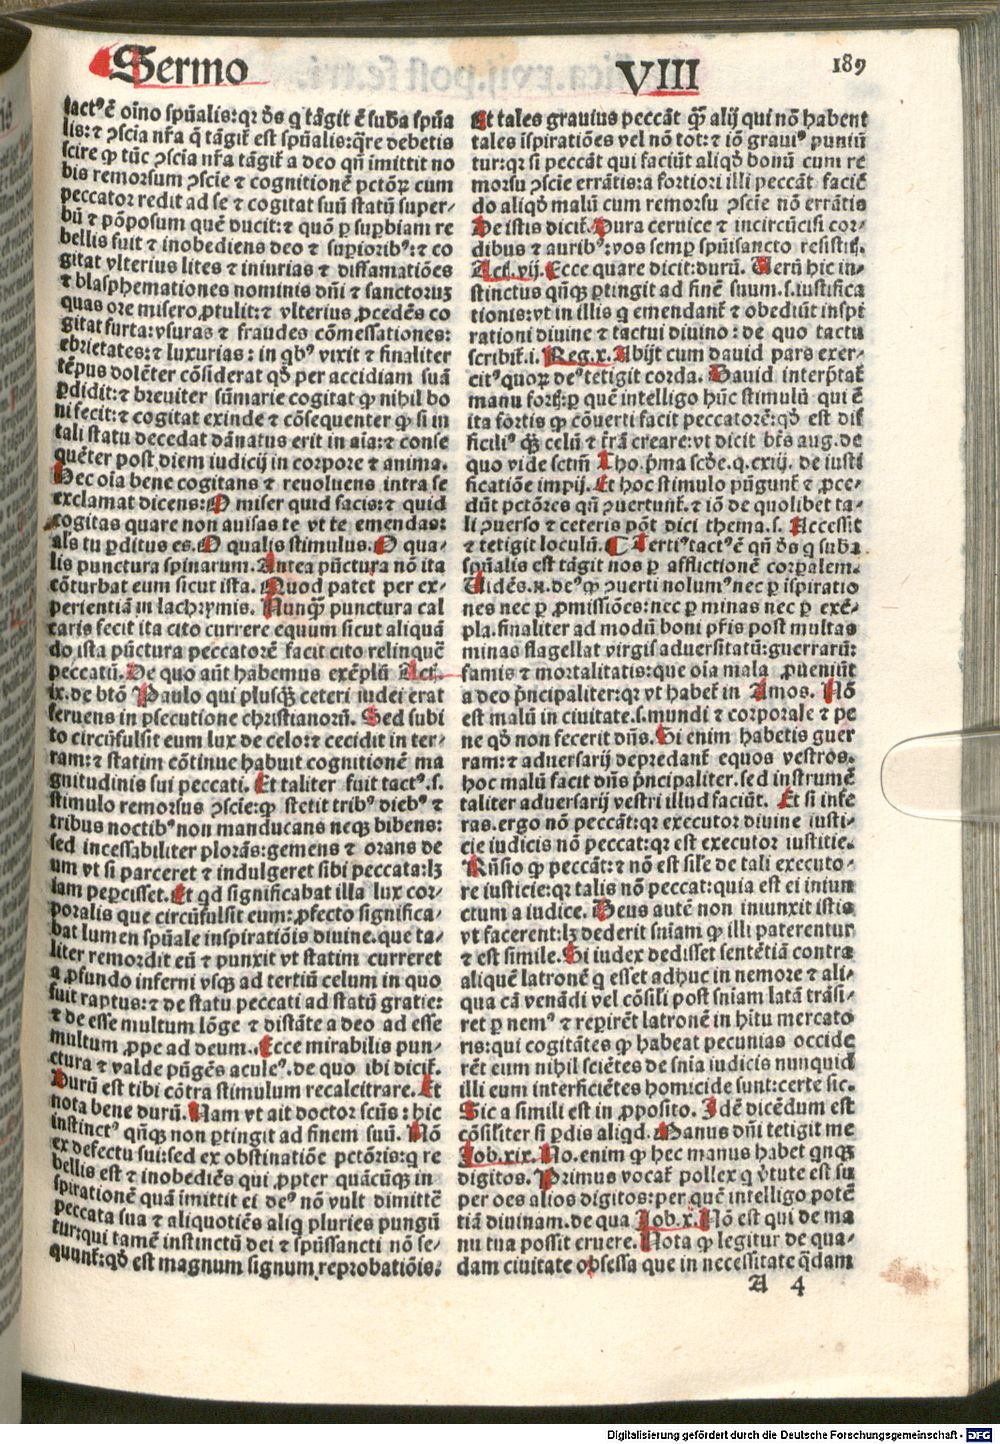 Sermo VIII 189
tactꝰ ē oīno spūalis: qꝛ dꝰs q tāgit ē suba spūa
lis: ⁊ ꝯscia nr̄a q̄ tāgiť est spūalis: q̄re debetis
scire ꝙ tūc ꝯscia nr̄a tāgiť a deo qn̄ immittit no
bis remorsum ꝯscie ⁊ cognitionē pctōꝝ cum
peccator redit ad se ⁊ cogitat suū statū super⸗
bū ⁊ pōposum quē ducit: ⁊ quō ꝑ supbiam re
bellis fuit ⁊ inobediens deo ⁊ supioribꝰ: ⁊ co
gitat vlterius lites ⁊ iniurias ⁊ diffamatiōes
⁊ blasphemationes nominis dn̄i ⁊ sanctoruꝫ
quas ore misero ꝓtulit: ⁊ vlterius ꝓcedēs co
gitat furta: vsuras ⁊ fraudes cōmessationes:
ebrietates: ⁊ luxurias: in qbꝰ vixit ⁊ finaliter
tēpus dolēter cōsiderat qđ per accidiam suā
ꝑdidit: ⁊ breuiter sūmarie cogitat ꝙ nihil bo
ni fecit: ⁊ cogitat exinde ⁊ cōsequenter ꝙ si in
tali statu decedat dānatus erit in aīa: ⁊ conse
quēter post diem iudicij in corpore ⁊ anima.
Hec oīa bene cogitans ⁊ reuoluens intra se
exclamat dicens: O miser quid facis: ⁊ quid
cogitas quare non auisas te vt te emendas:
als tu ꝑditus es. O qualis stimulus. O qua⸗
lis punctura spinarum. Antea pūctura nō ita
cōturbat eum sicut ista. Quod patet per ex⸗
perientiā in lachrymis. Nunqȝ punctura cal
caris fecit ita cito currere equum sicut aliquā
do ista pūctura peccatorē facit cito relinquē
peccatū. De quo aūt habemus exēplū Act.
ix. de btō Paulo qui plusqȝ ceteri iudei erat
feruens in psecutione christianorū. Sed subi
to circūfulsit eum lux de celo: ⁊ cecidit in ter⸗
ram: ⁊ statim cōtinue habuit cognitionē ma
gnitudinis sui peccati. Et taliter fuit tactꝰ. s.
stimulo remorsus ꝯscie: ꝙ stetit tribꝰ diebꝰ ⁊
tribus noctibꝰ non manducans neqȝ bibens:
sed incessabiliter plorās: gemens ⁊ orans de
um vt si parceret ⁊ indulgeret sibi peccata: lꝫ
iam pepcisset. Et qd significabat illa lux cor⸗
poralis que circūfulsit eum: ꝓfecto significa⸗
bat lumen spūale inspiratiōis diuine. que ta⸗
liter remordit eū ⁊ punxit vt statim curreret
a ꝓfundo inferni vsqȝ ad tertiū celum in quo
fuit raptus: ⁊ de statu peccati ad statū gratie:
⁊ de esse multum lōge ⁊ distāte a deo ad esse
multum ꝓpe ad deum. Ecce mirabilis pun⸗
ctura ⁊ valde pūgēs aculeꝰ. de quo ibi diciť.
Durū est tibi cōtra stimulum recalcitrare. Et
nota bene durū. Nam vt ait doctor scūs: hic
instinctꝰ qn̄qȝ non ꝑtingit ad finem suū. Nō
ex defectu sui: sed ex obstinatiōe pctōris: q re
bellis est ⁊ inobediēs qui ꝓpter quācūqȝ in
spirationē quā imittit ei deꝰ nō vult dimittē
peccata sua ⁊ aliquotiēs aliq pluries pungū
tur: qui tamē instinctū dei ⁊ spūssancti nō se⸗
quunť: qđ est magnum signum reprobatiōis.
Et tales grauius peccāt qȝ alij qui nō habent
tales īspiratiōes vel nō tot: ⁊ iō grauiꝰ puniū
tur: qꝛ si peccāt qui faciūt aliqđ bonū cum re
morsu ꝯscie errātis: a fortiori illi peccāt faciē
do aliqđ malū cum remorsu ꝯscie nō errātis
De istis diciť. Dura ceruice ⁊ incircūcisi cor⸗
dibus ⁊ auribꝰ: vos semp spūisancto resistitꝭ.
Act. vij. Ecce quare dicit: durū. Verū hic in⸗
stinctus qn̄qȝ ꝑtingit ad finē suum. s. iustifica
tionis: vt in illis q emendanť ⁊ obediūt inspi
rationi diuine ⁊ tactui diuino: de quo tactu
scribiť. i. Reg. x. Abijt cum dauid pars exer⸗
citꝰ quoꝝ deꝰ tetigit corda. Dauid interp̄tať
manu fortꝭ: ꝑ quē intelligo hūc stimulū qui ē
ita fortis ꝙ cōuerti facit peccatorē: qđ est dif
ficiliꝰ qȝ celū ⁊ frā creare: vt dicit bt̄s aug. de
quo vide sctm̄ Tho. p̄ma scđe. q. cxiij. de iusti
ficatiōe impij. Et hoc stimulo pūgunť ⁊ ꝓce⸗
dūt pctōres qn̄ ꝯuertunť. ⁊ iō de quolibet ta⸗
li ꝯuerso ⁊ ceteris pōt dici thema. s. Accessit
⁊ tetigit loculū. ¶ Tertiꝰ tactꝰ ē qn̄ dꝰs q suba
spūalis est tāgit nos ꝑ afflictionē corpalem.
Vidēs. n. deꝰ ꝙ ꝯuerti nolumꝰ nec ꝑ īspiratio
nes nec ꝑ ꝓmissiōes: nec ꝑ minas nec ꝑ exē⸗
pla. finaliter ad modū boni pr̄is post multas
minas flagellat virgis aduersitatū: guerrarū:
famis ⁊ mortalitatis: que oīa mala ꝓueniūt
a deo p̄ncipaliter: qꝛ vt habeť in Amos. Nō
est malū in ciuitate. s. mundi ⁊ corporale ⁊ pe
ne qđ non fecerit dn̄s. Si enim habetis guer
ram: ⁊ aduersarij depredanť equos vestros.
hoc malū facit dn̄s p̄ncipaliter. sed instrumē
taliter aduersarij vestri illud faciūt. Et si infe
ras. ergo nō peccāt: qꝛ executor diuine iusti⸗
cie iudicis nō peccat: qꝛ est executor iustitie.
Rn̄sio ꝙ peccāt: ⁊ nō est sile de tali executo⸗
re iusticie: qꝛ talis nō peccat: quia est ei iniun
ctum a iudice. Deus autē non iniunxit istis
vt facerent: lꝫ dederit sniam ꝙ illi paterentur
⁊ est simile. Si iudex dedisset sentētiā contra
aliquē latronē q esset adhuc in nemore ⁊ ali⸗
qua cā venādi vel cōsili post sniam latā trāsi⸗
ret ꝑ nemꝰ ⁊ repiret latronē in hītu mercato
ris: qui cogitātes ꝙ habeat pecunias occide
rēt eum nihil sciētes de snia iudicis nunquid
illi eum interficiētes homicide sunt: certe sic.
Sic a simili est in ꝓposito. Idē dicēdum est
cōsiliter si ꝑdis aliqd. Manus dn̄i tetigit me
Job. xix. No. enim ꝙ hec manus habet qnqȝ
digitos. Primus vocať pollex q v̓tute est su
per oēs alios digitos: per quē intelligo potē
tiā diuinam. de qua Job. x. Nō est qui de ma
nu tua possit eruere. Nota ꝙ legitur de qua⸗
dam ciuitate obsessa que in necessitate q̄dam
A 4
Digitalisierung gefördert durch die Deutsche Forschungsgemeinschaft - DFG